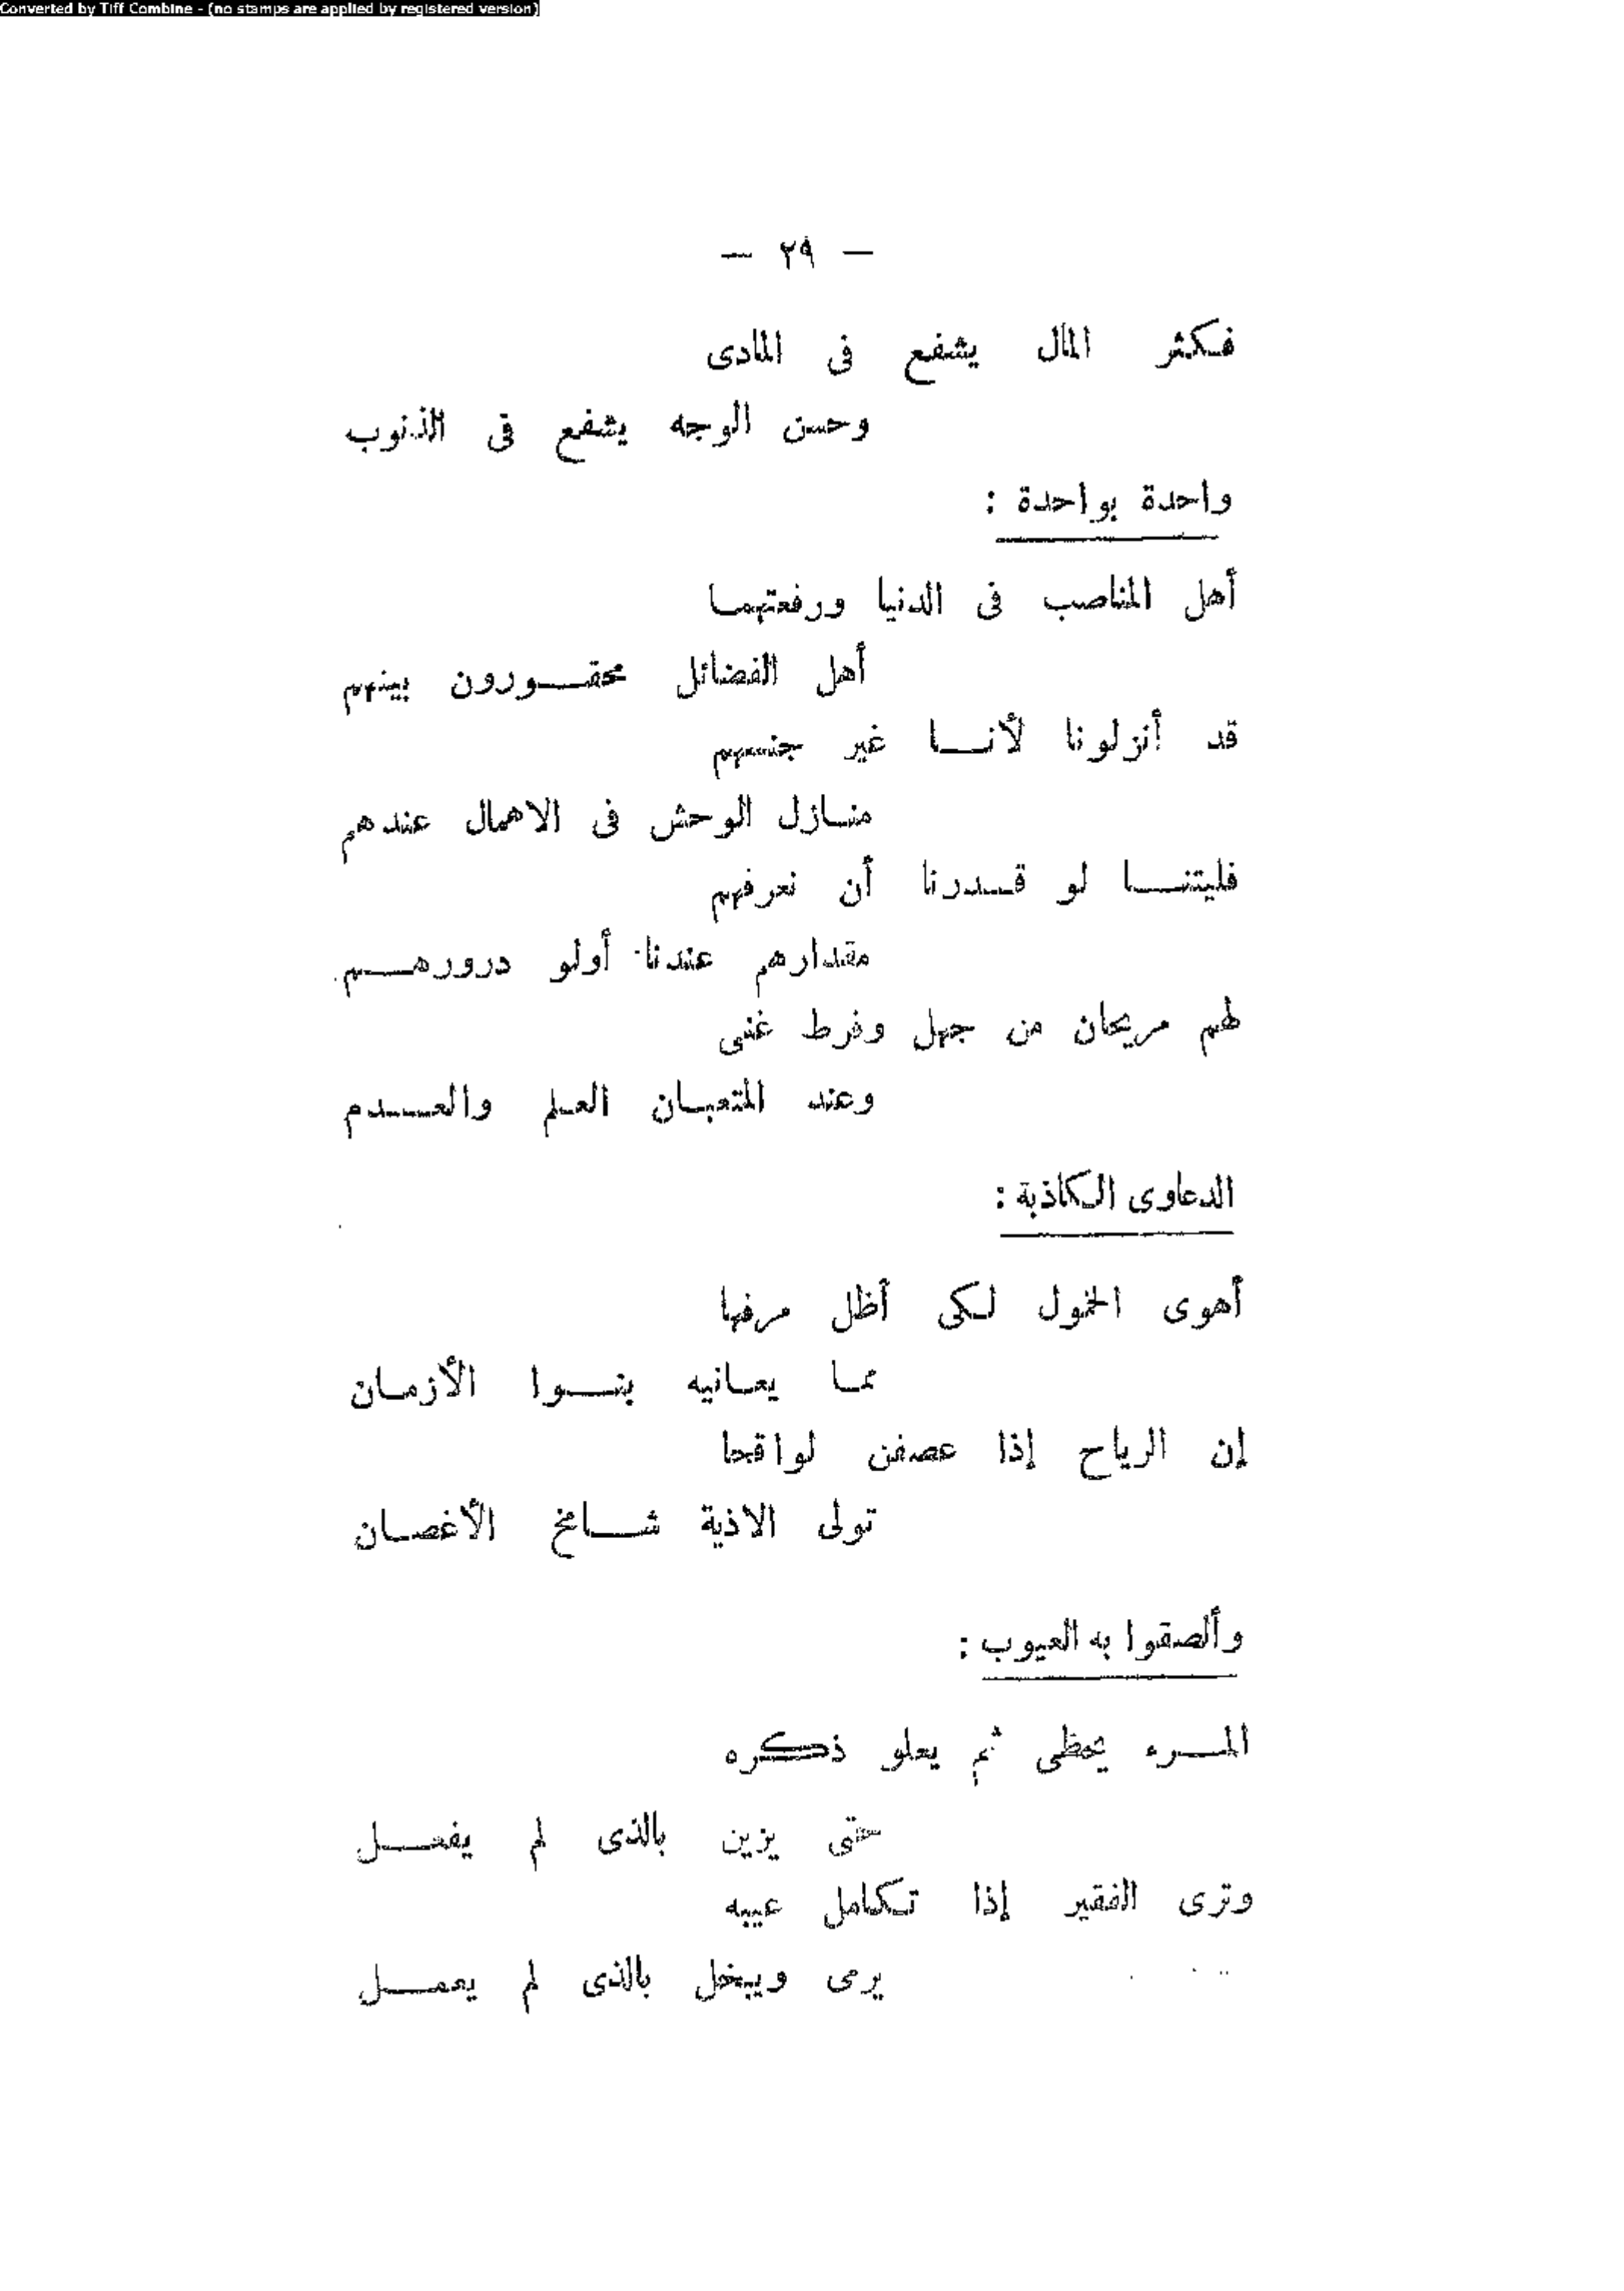 Converted by Tiff Combine - (no stamps are applied by registered version)
— ٢٩ —
فكثر المال يشفع فى المادى
وحسن الوجه يشفع فى الذنوب
واحدة بواحدة :
أهل المناصب فى الدنيا ورفعتهما
أهل الفضائل محقورون بينهم
قد أنزلونا لأنا غير جنسهم
منازل الوحش فى الاهمال عندهم
فليتنا لو قدرنا أن نعرفهم
مقدارهم عندنا أولو درورهم
لهم مريحان من جهل وفرط غنى
وعند المتعبان العلم والعدم
الدعاوى الكاذبة :
أهوى الخمول لكى أظل مرفها
مما يعانيه بنوا الأزمان
إن الرياح إذا عصفن لواقحا
تولى الاذية شامخ الأغصان
وألصقوا به العيوب :
المرء يحظى ثم يعلو ذكره
حتى يزين بالذى لم يفعل
وترى الفقير إذا تكامل عيبه
يرمى ويبخل بالذى لم يعمل